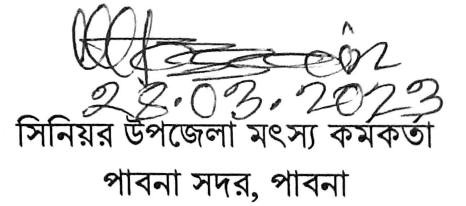 28.03.2023
সিনিয়র উপজেলা মৎস্য কর্মকর্তা
পাবনা সদর, পাবনা